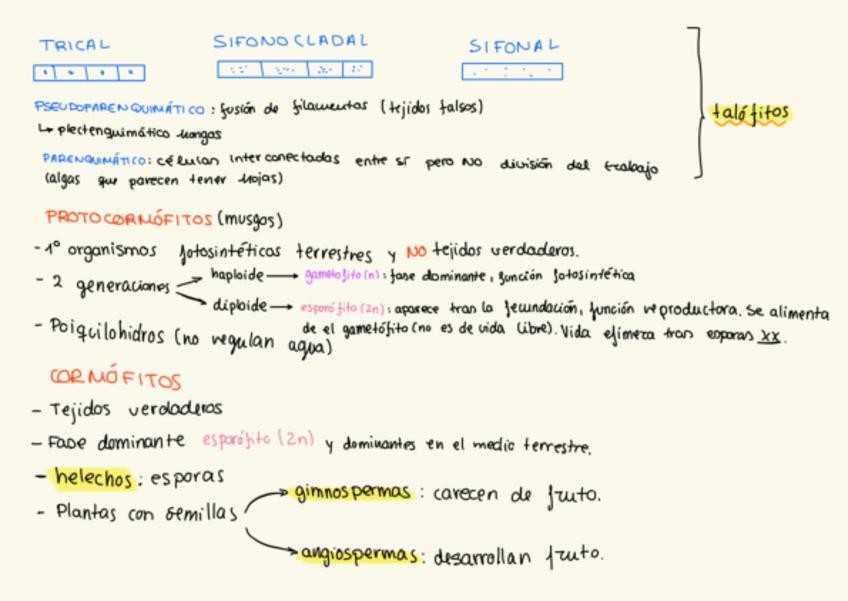 TRICAL SIFONOCLADAL SIFONAL
PSEUDOPARENQUIMÁTICO: fusión de filamentos (tejidos falsos)
↳ plectenquimático hongos
talófitos
PARENQUIMÁTICO: células interconectadas entre sí pero NO división del trabajo
(algas que parecen tener hojas)
PROTOCORMÓFITOS (musgos)
- 1º organismos fotosintéticos terrestres y NO tejidos verdaderos.
- 2 generaciones → haploide → gametofito (n): fase dominante, función fotosintética
→ diploide → esporófito (2n): aparece tras la fecundación, función reproductora. Se alimenta
de el gametófito (no es de vida libre). Vida efímera tras esporas XX.
- Poiquilohidros (no regulan agua)
CORMÓFITOS
- Tejidos verdaderos
- Fase dominante esporófito (2n) y dominantes en el medio terrestre.
- helechos: esporas
- Plantas con semillas → gimnospermas: carecen de fruto.
→ angiospermas: desarrollan fruto.